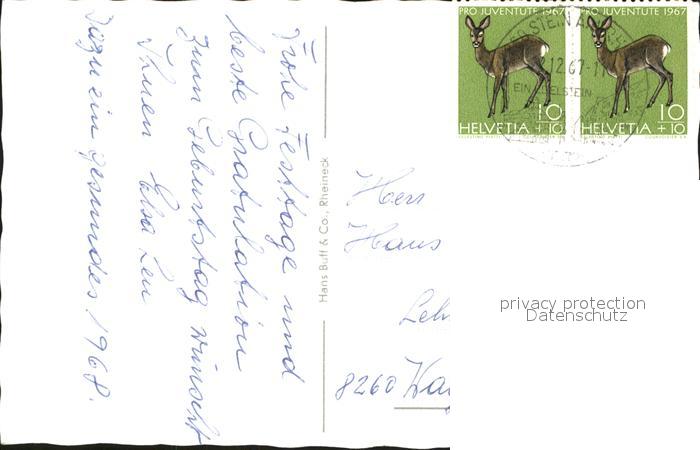 Frohe Festtage und
beste Gratulation
zum Geburtstag wünscht
Ihnen Elsa Leu
Dazu ein gesundes 1968.
Hans Buff & Co., Rheineck
PRO JUVENTUTE 1967
10
HELVETIA +10
PRO JUVENTUTE 1967
10
HELVETIA +10
STEIN AM
12.67-1
EIN EDELSTEIN
Herr
Hans
Leh
8260
privacy protection
Datenschutz